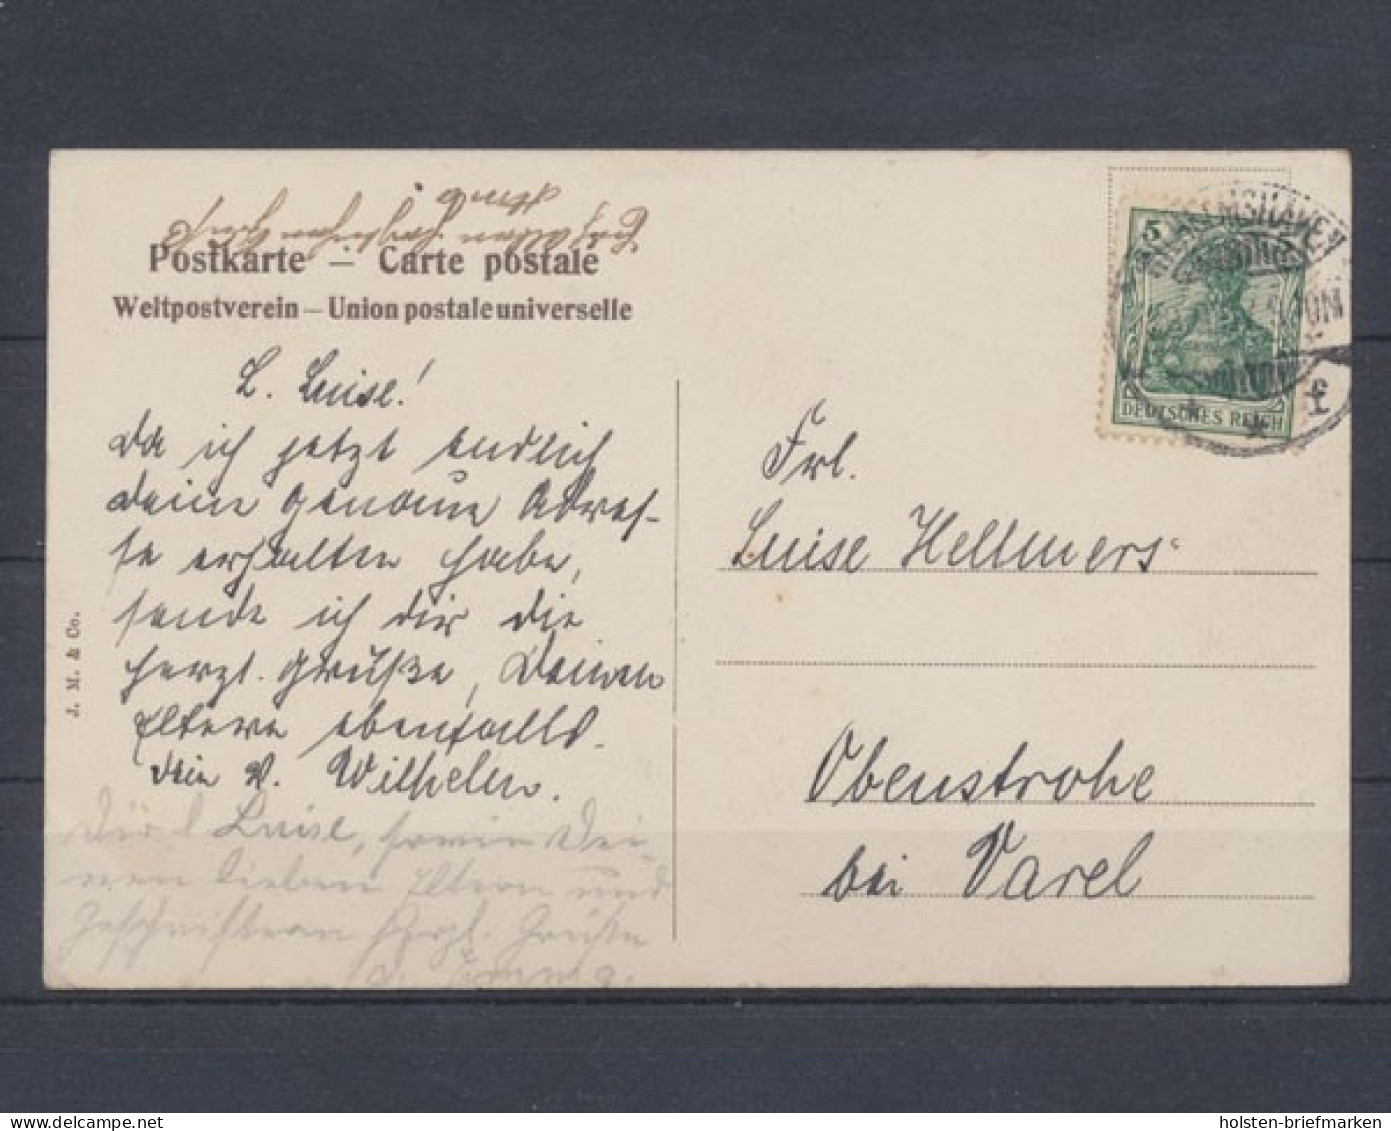 Postkarte – Carte postale
Weltpostverein – Union postale universelle
L. Luise!
Da ich jetzt endlich
deine genaue Adres-
se erhalten habe,
sende ich dir die
herzl. Grüße, Deinen
Eltern ebenfalls.
Dein V. Wilhelm.
Dir l Luise, sowie Dei-
nen lieben Eltern und
Geschwistern herzl. Grüße
J. M. & Co.
5
DEUTSCHES REICH
WILHELMSHAVEN
Frl.
Luise Hellmers
Obenstrohe
bei Varel
holsten-briefmarken